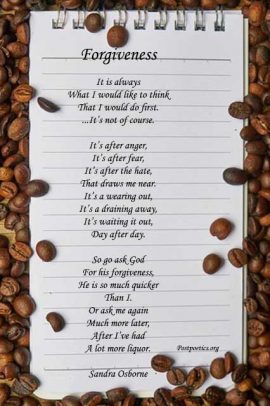 Forgiveness
It is always
What I would like to think
That I would do first.
...It's not of course.
It's after anger,
It's after fear,
It's after the hate,
That draws me near.
It's a wearing out,
It's a draining away,
It's waiting it out,
Day after day.
So go ask God
For his forgiveness,
He is so much quicker
Than I.
Or ask me again
Much more later,
After I've had
A lot more liquor.
Postpoetics.org
Sandra Osborne